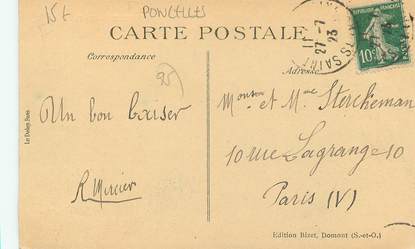 15€
PONCELLES
CARTE POSTALE
Correspondance
95
Adresse
RÉPUBLIQUE FRANÇAISE
10c
27-7
23
Un bon baiser
R Mercier
Monsieur et Mme Sterckeman
10 rue Lagrange 10
Paris (V)
Edition Bizet, Domont (S.-et-O.)